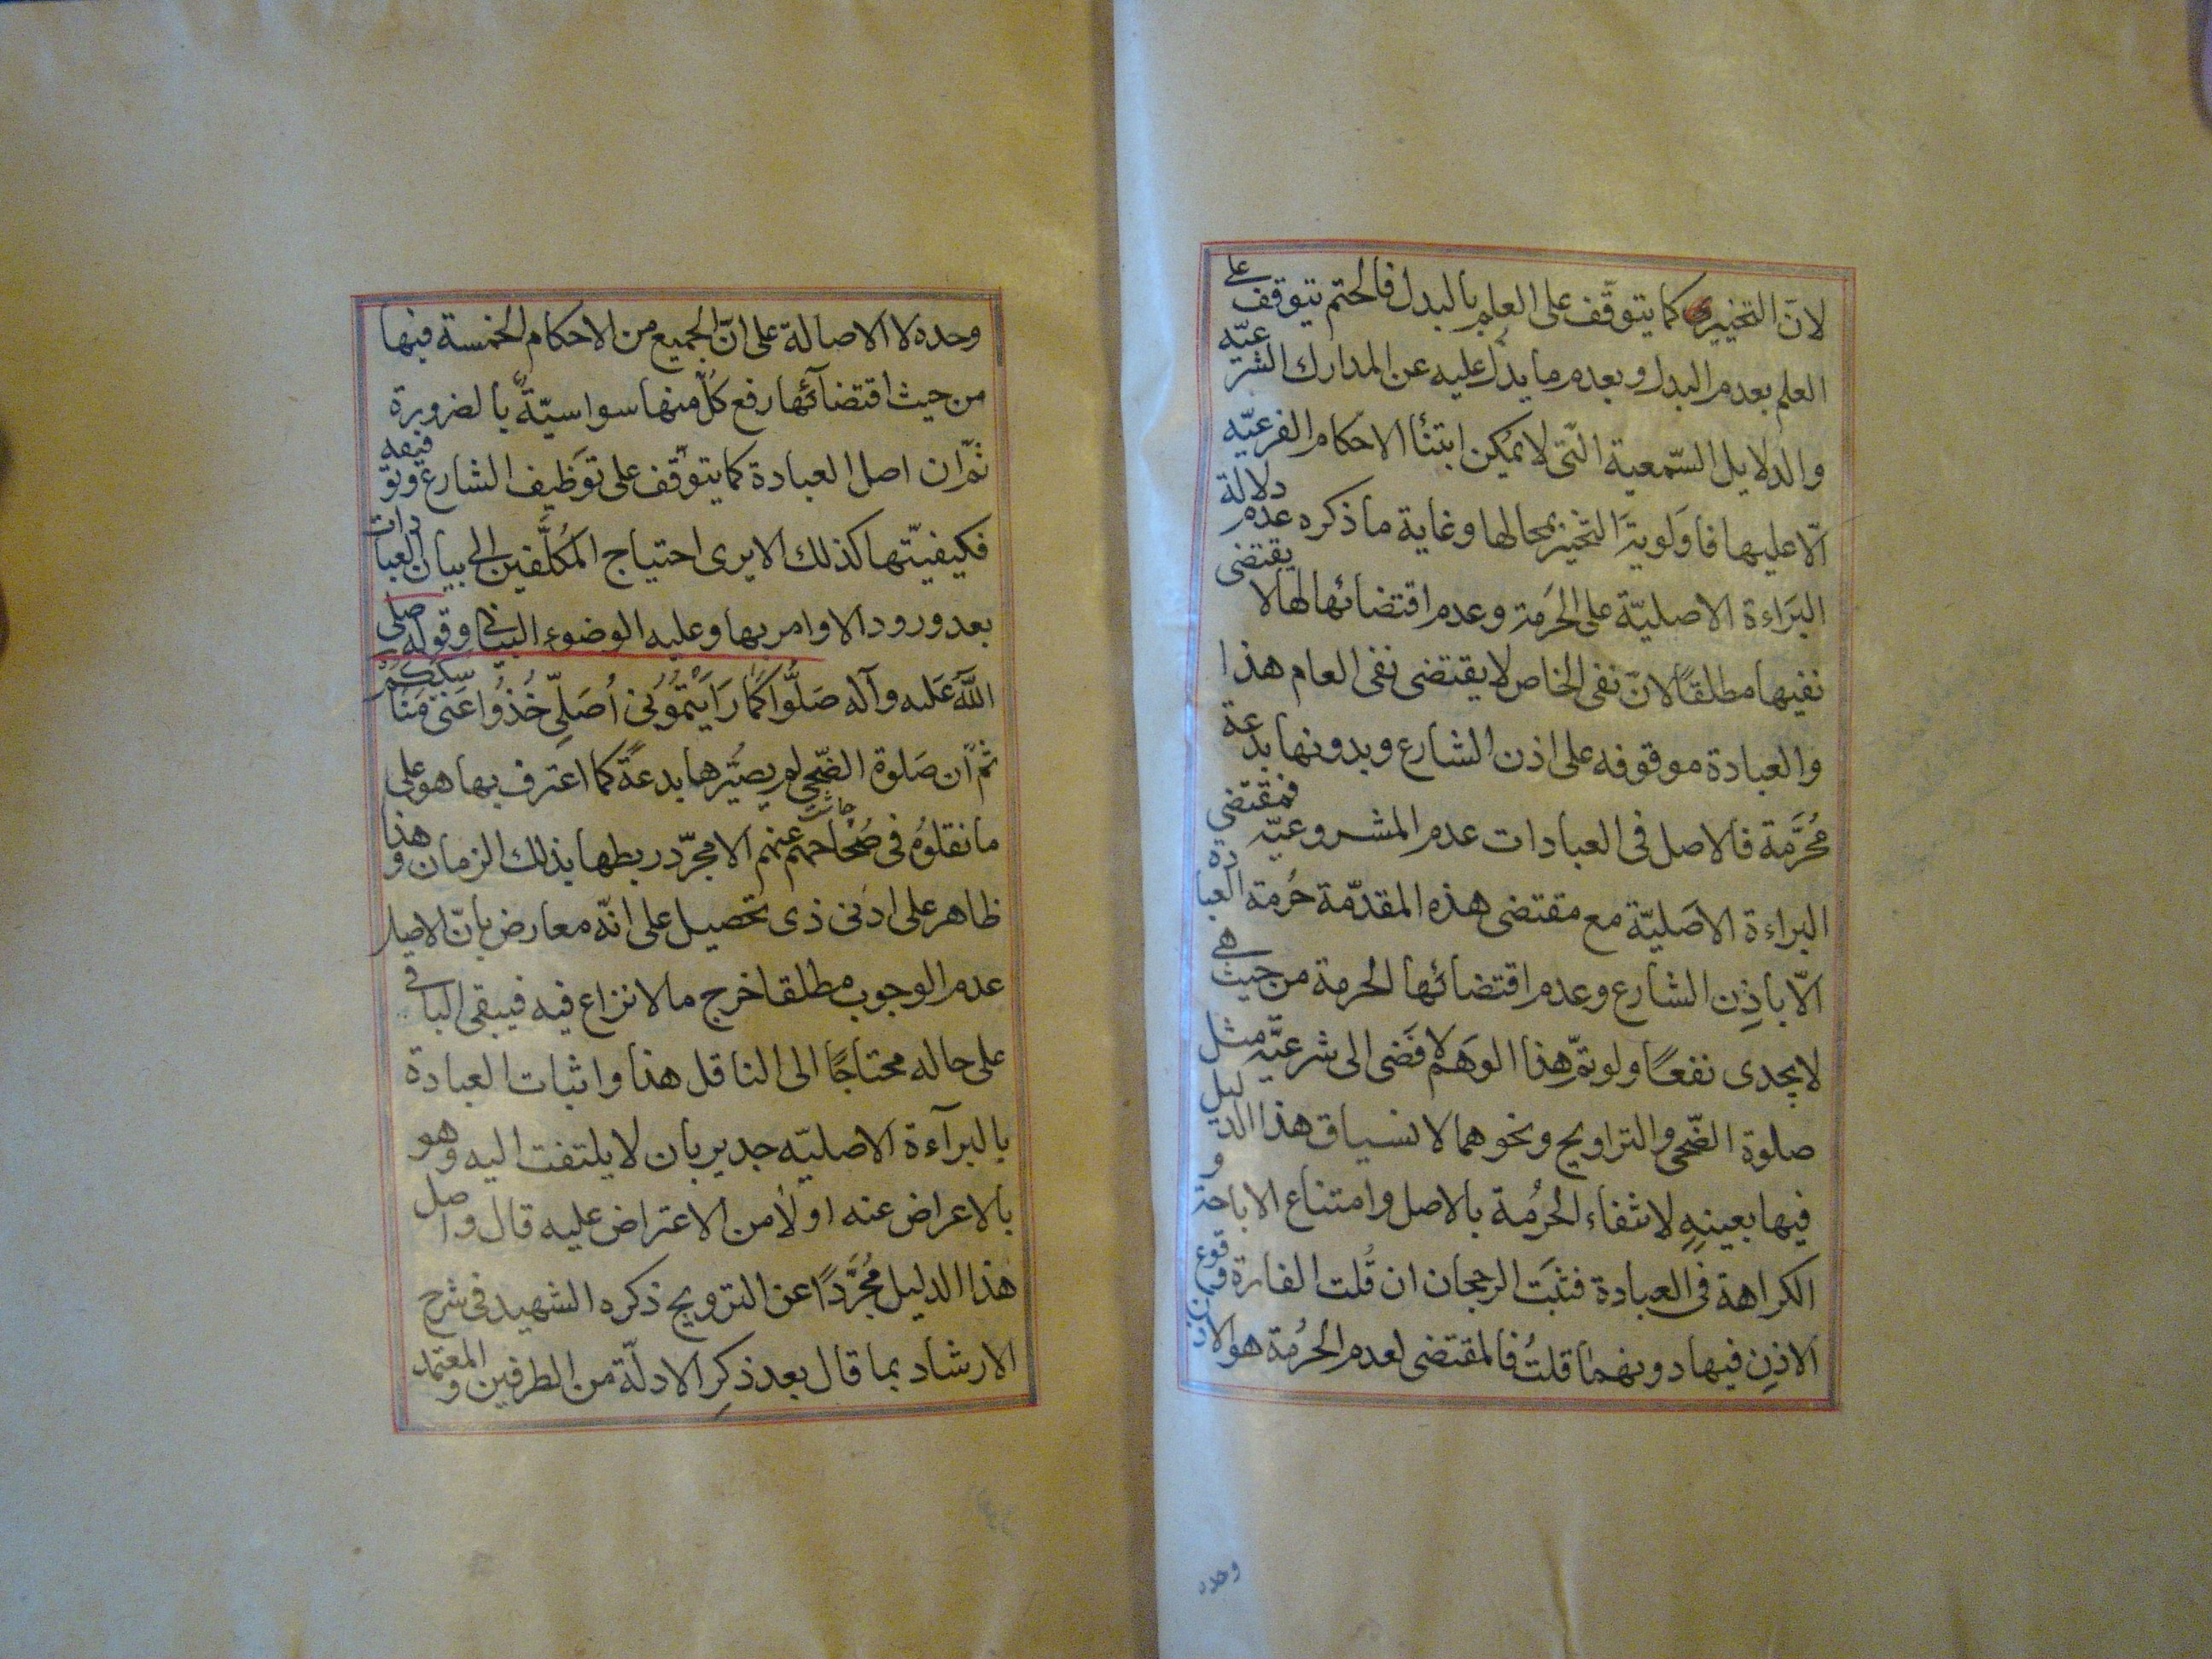 لانّ التخييرى كما يتوقّف على العلم بالبدل فالحتم يتوقف على
العلم بعدم البدل و بعدم ما يدلّ عليه عن المدارك الشرعيّه
والدلايل السّمعية التّى لا يمكن ابتنأ الاحكام الفرعيّه
الّا عليها فاولوية التخيير بحالها وغاية ما ذكره عدم دلالة
البَراءة الاصليّة على الحَرمة وعدم اقتضائها لها لا يقتضى
نفيها مطلقًا لانّ نفى الخاص لا يقتضى نفى العام هذا
والعبادة موقوفه على اذن الشارع وبدونها بدعة
مُحَرَّمة فالاصل فى العبادات عدم المشروعيّه فمقتضى
البراءة الاصَليّة مع مقتضى هذه المقدّمة حُرمة العبادة
الّا باذِن الشارع وعدم اقتضائها الحُرمة من حيث هى
لا يجدى نفعًا ولو تمّ هذا الوَهم لافَضى الى شرعيَّه مثل
صلوة الضّحى والتراويح ونحوهما لانسياق هذا الدليل
فيها بعينهِ لانتفاء الحُرُمة بالاصل وامتناع الاباحة و
الكراهة فى العبادة فثبَت الرجحان ان قُلت الفارق وقوع
الاذِن فيها دونهما قلتُ فالمقتضى لعدم الحُرُمة هو الاذن
وحده
وحده لا الاصالة على انّ الجميع من الاحكام الخمسة فيها
من حيث اقتضآئها رفع كلّ منها سواسيّةٌ بالضرورة
ثمّ ان اصل العبادة كما يتوقّف على توَظيف الشارع وتوقيفه
فكيفيّتها كذلك الا يرى احتياج المكلَّفين الى بيان العبادات
بعد ورود الاوامر بها وعليه الوضوء البيانى وقوله صلى
اللّه عَليه وآله صَلُّوا كَمَا رَايَتمُوُنى اُصَلّىِ خُذُوا عَنّى مَنَاسِكَكُمْ
ثمّ ان صَلوة الضّحى لم يصيّرها بدعةً كما اعترف بها هو على
ما نقلوُه فى صُحاحهم عنهم الا مجرّد ربطها بذلك الزمان وهذا
ظاهر على ادنى ذى تحصيل على انّه معارض بانّ الاصل
عدم الوجوب مطلقا خرج ما لا نزاع فيه فيبقى الباقى
على حاله محتاجًا الى الناقل هذا واثبات العبادة
بالبرآءة الاصليّه جدير بان لا يلتفت اليه وهو
بالاعراض عنه اولٰا من الاعتراض عليه قال واصل
هذا الدليل مُجُرَّدًا عن الترويج ذكره الشهيد فى شرح
الارشاد بما قال بعد ذكرِ الادلّة من الطرفين والمعتمد